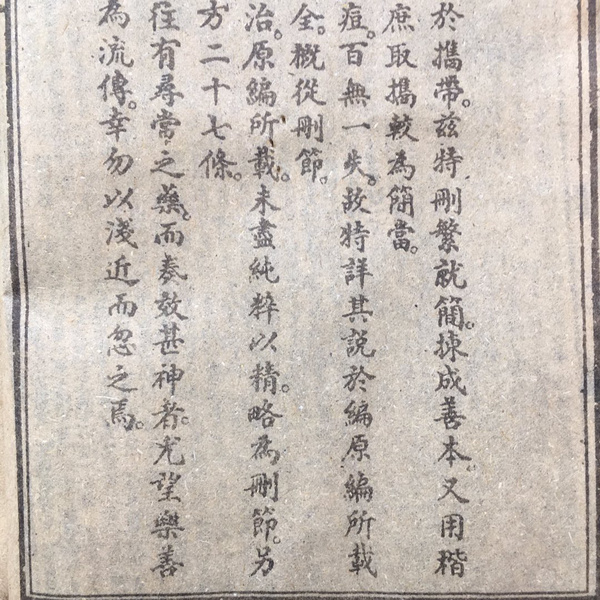 於攜帶。茲特刪繁就簡。揀成善本。又用楷
庶取攜較為簡當。
痘。百無一失。故特詳其說於編原編所載
全。概從刪節。
治。原編所載。未盡純粹以精。略為刪節。另
方二十七條。
往有尋常之藥。而奏效甚神者。尤望樂善
為流傳。幸勿以淺近而忽之焉。